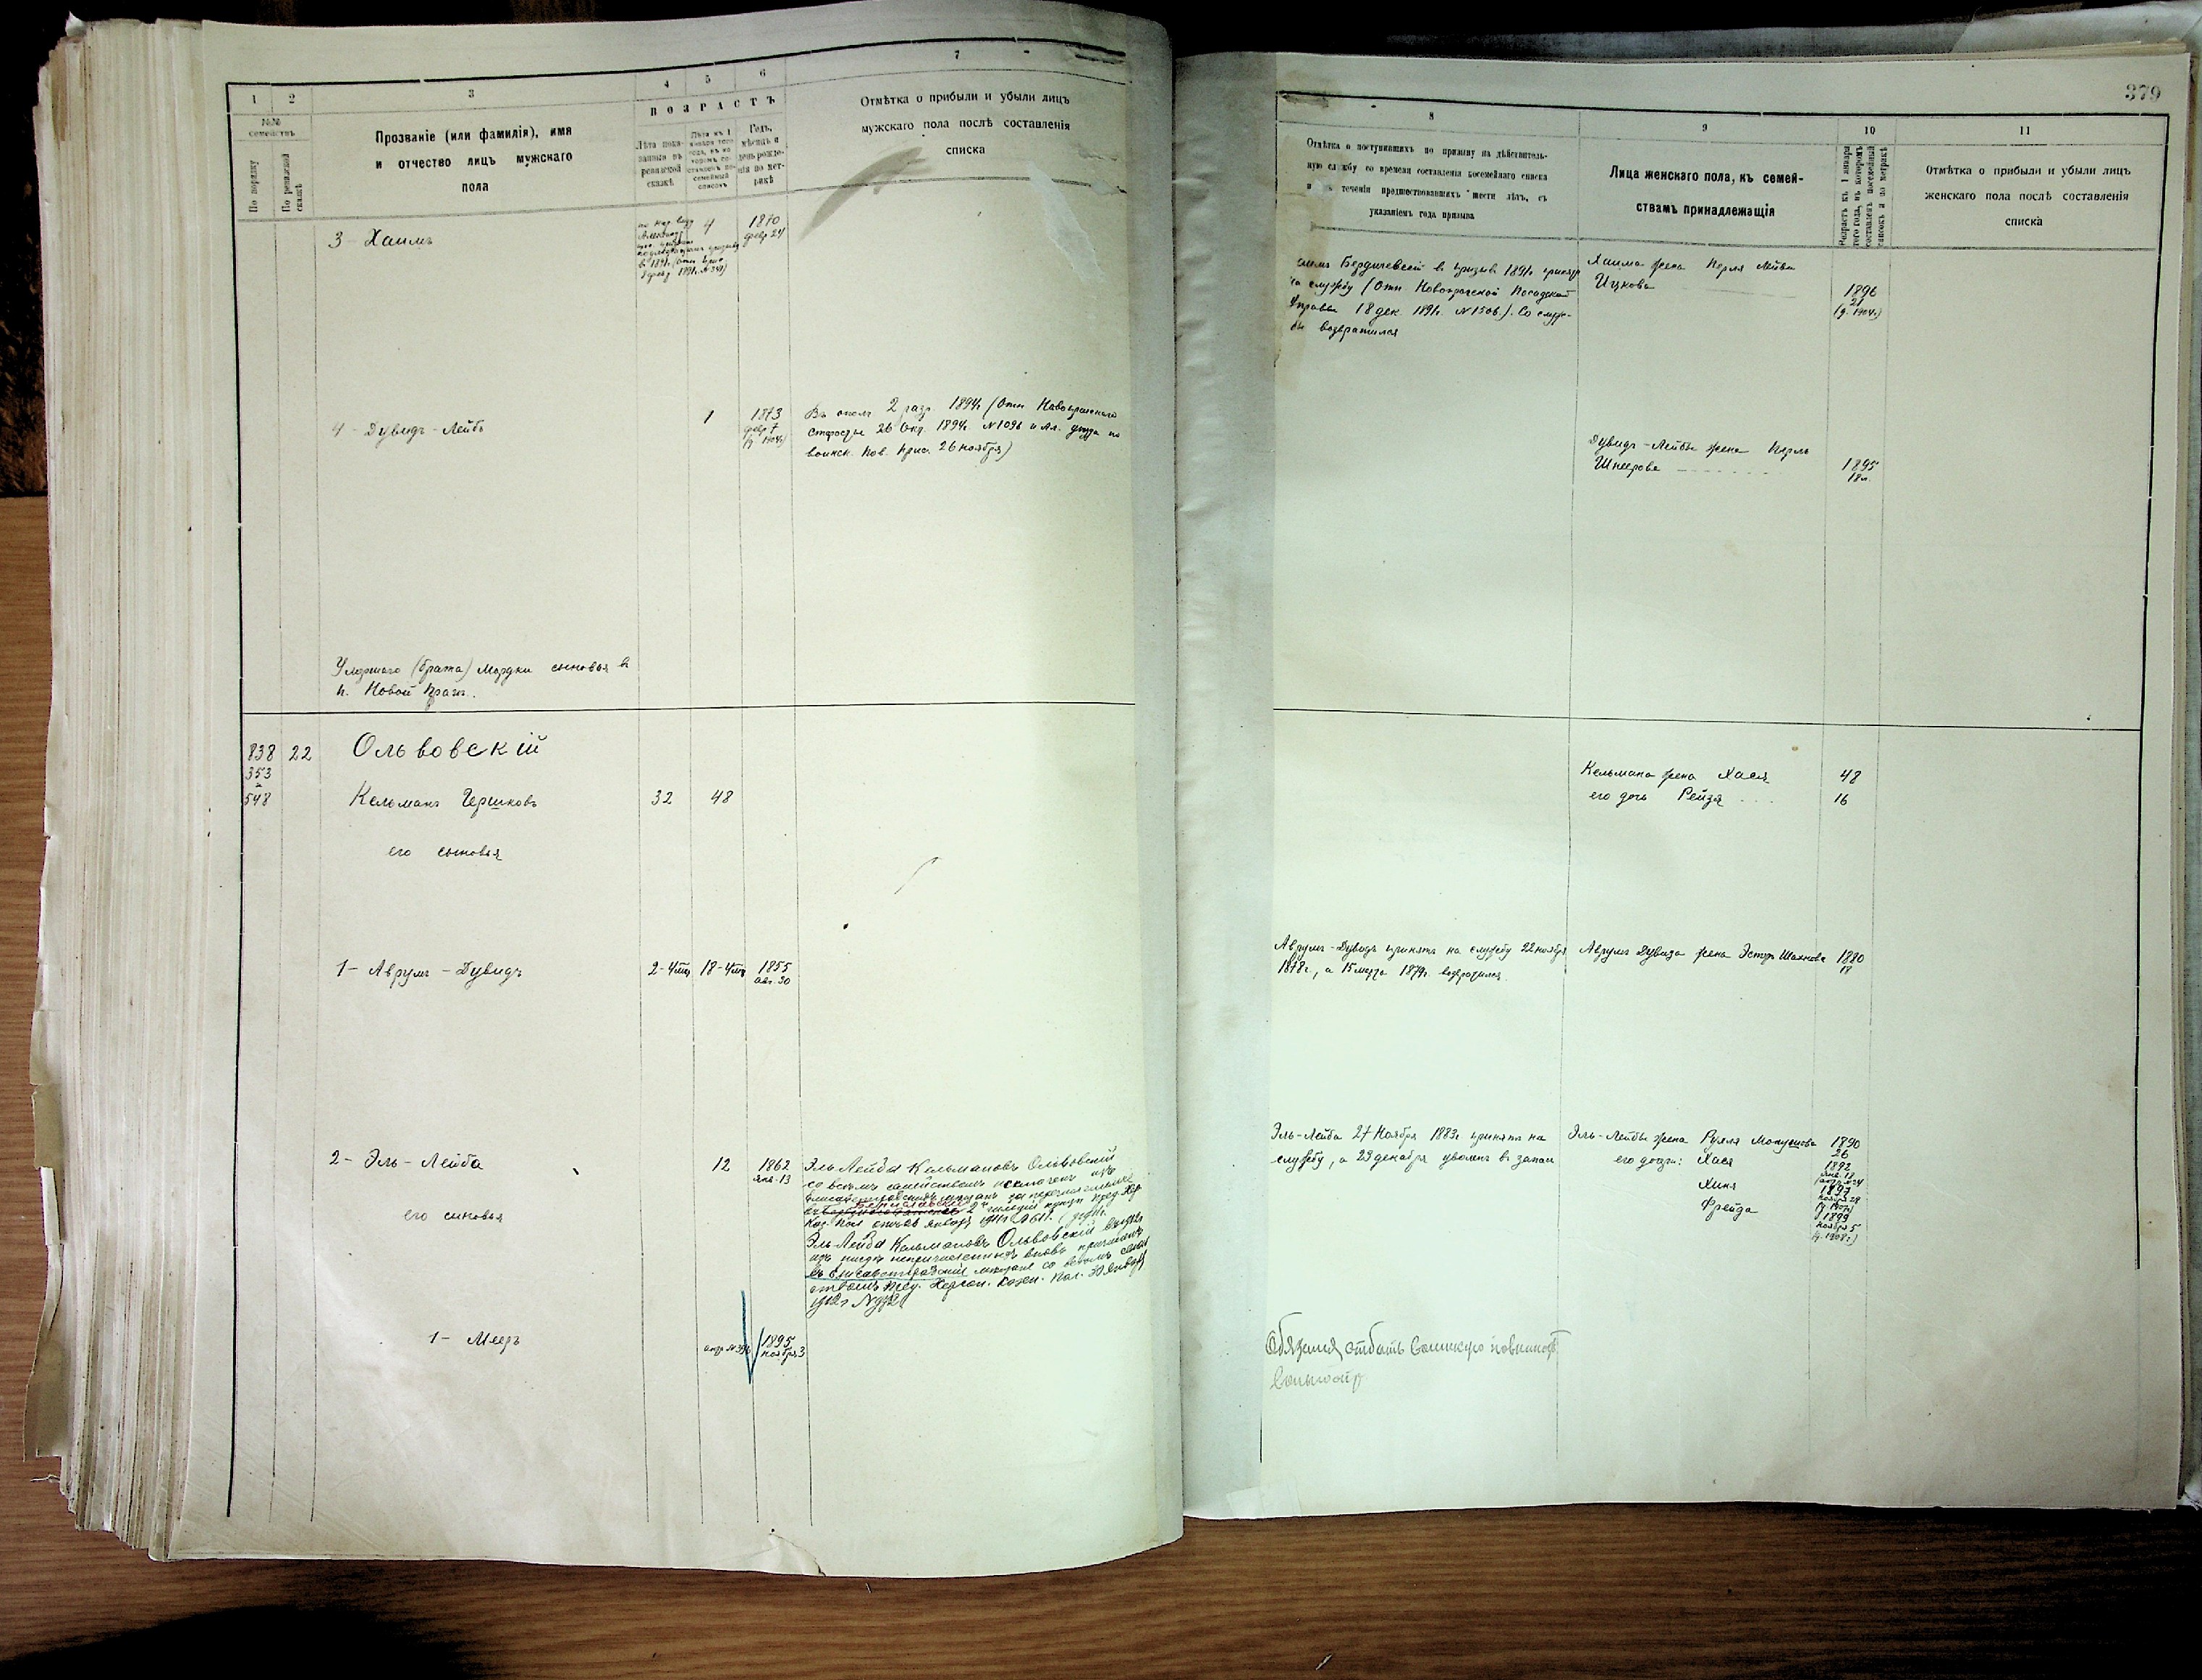 379
1 2 3 4 5 6 7
№№ семействъ
По порядку
По ревизской сказкѣ
Прозваніе (или фамилія), имя
и отчество лицъ мужскаго
пола
ВОЗРАСТЪ
Лѣта пока-
занныя въ
ревизской
сказкѣ
Лѣта къ 1
января того
года, въ ко-
торомъ со-
ставленъ по-
семейный
списокъ
Годъ,
мѣсяцъ и
день рожде-
нія по мет-
рикѣ
Отмѣтка о прибыли и убыли лицъ
мужскаго пола послѣ составленія
списка
3 - Хаимъ
4
1870
февр 24
4 - Дувидъ-Лейбъ
1
1873
февр 7
Въ опол 2 разр. 1894г (Отн Новопражскаго
старосты 26 Окт. 1894г №1096 и Ал. уѣзд по
воинск. пов. прис. 26 ноября)
Умершаго (брата) Мордки сыновья в
п. Новой Прагѣ.
838
353
548
22
Ольвовскій
Кельманъ Гершковъ 32 48
его сыновья
1 - Аврумъ-Дувидъ 2-4мц 18-4мц 1855
авг. 30
2 - Эль-Лейба 12 1862
янв. 13
его сыновья
Эль Лейба Кельмановъ Ольвовскій
со всѣмъ семействомъ исключенъ изъ
Эль Лейба Кельмановъ Ольвовскій
вновь причисленъ
въ Елисаветградскіе мѣщане со всѣмъ семей
ствомъ пред. Херсон. Казен. Пал. 30 Января
1 - Мееръ
1895
ноября 3
8 9 10 11
Отмѣтка о поступившихъ по призыву на дѣйствитель-
ную службу со времени составленія посемейнаго списка
и въ теченіи предшествовавшихъ шести лѣтъ, съ
указаніемъ года призыва
Лица женскаго пола, къ семей-
ствамъ принадлежащія
Возрастъ къ 1 января
того года, въ которомъ
составленъ посемейный
списокъ и по метрикѣ
Отмѣтка о прибыли и убыли лицъ
женскаго пола послѣ составленія
списка
Бердичевскій в призыв 1891г принят
на службу (Отн Новопражской Посадской
Управы 18 дек. 1891г. №1506). Со служ-
бы возвратился
Хаима жена Перля Лейва
Ицкова
1896
21
(д. 1904г)
Дувидъ-Лейбы жена Перль
Шнеерова
1895
18л.
Кельмана жена Хася 48
его дочь Рейзя 16
Аврумъ-Дувидъ принятъ на службу 22 ноября
1878г, а 15 марта 1879г. возвратился.
Аврумъ Дувида жена Эстеръ Шахнова 1880
Эль-Лейба 27 Ноября 1883г принятъ на
службу, а 29 декабря уволенъ в запас
Эль-Лейбы жена Рухля Мопушова 1890
26
его дочери: Хася
1892
Хиня
1897
Фрейда
1899
ноября 5
(д. 1908г.)
Обязанъ отбыть воинскую повинность